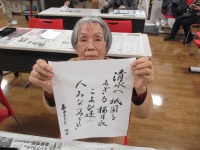 清水へ祇園を
よぎる桜月夜
こよひ逢ふ
人みなうつくしき